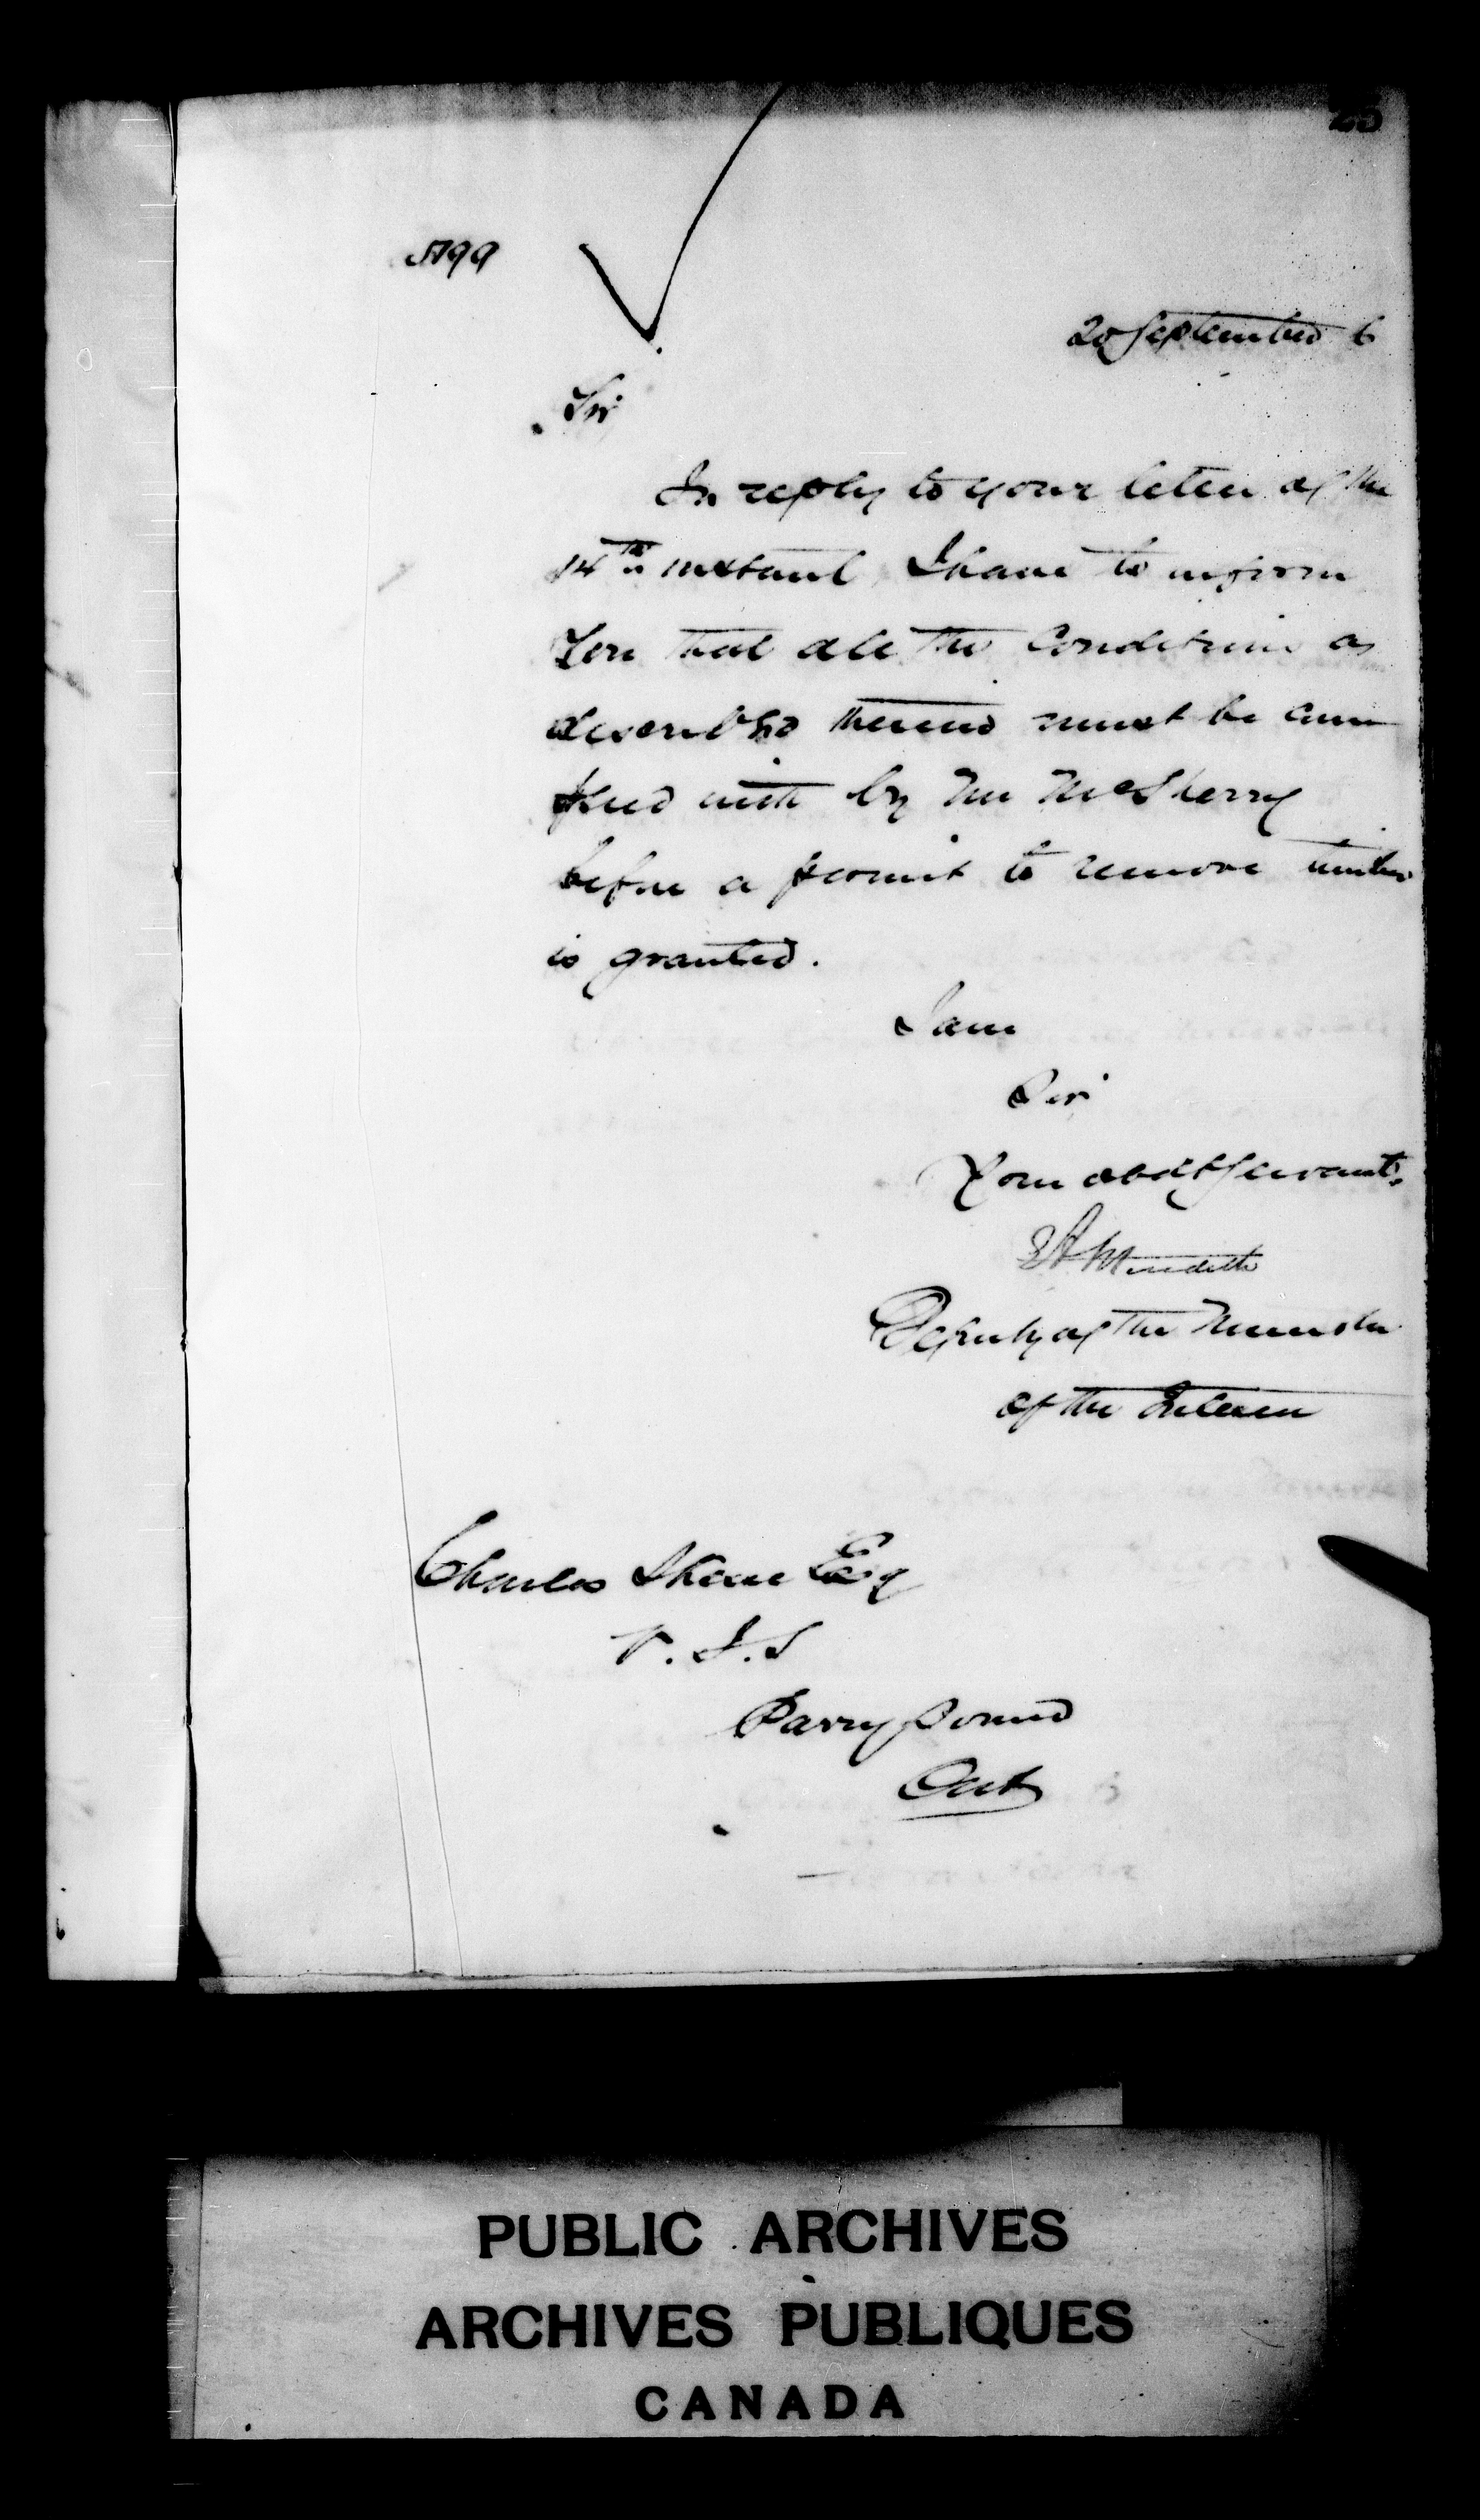 5799
20 September 6
Sir
In reply to your letter of the
14th instant I have to inform
You that all the Conditions as
described therein must be com
plied with by Mr McSherry
before a permit to remove timber
is granted.
I am
Sir
Your obdt Servant.
EA Meredith
Deputy of the Minister
of the Interior
Charles Skene Esq
V. I. S
Parry Sound
Ont
PUBLIC ARCHIVES
ARCHIVES PUBLIQUES
CANADA